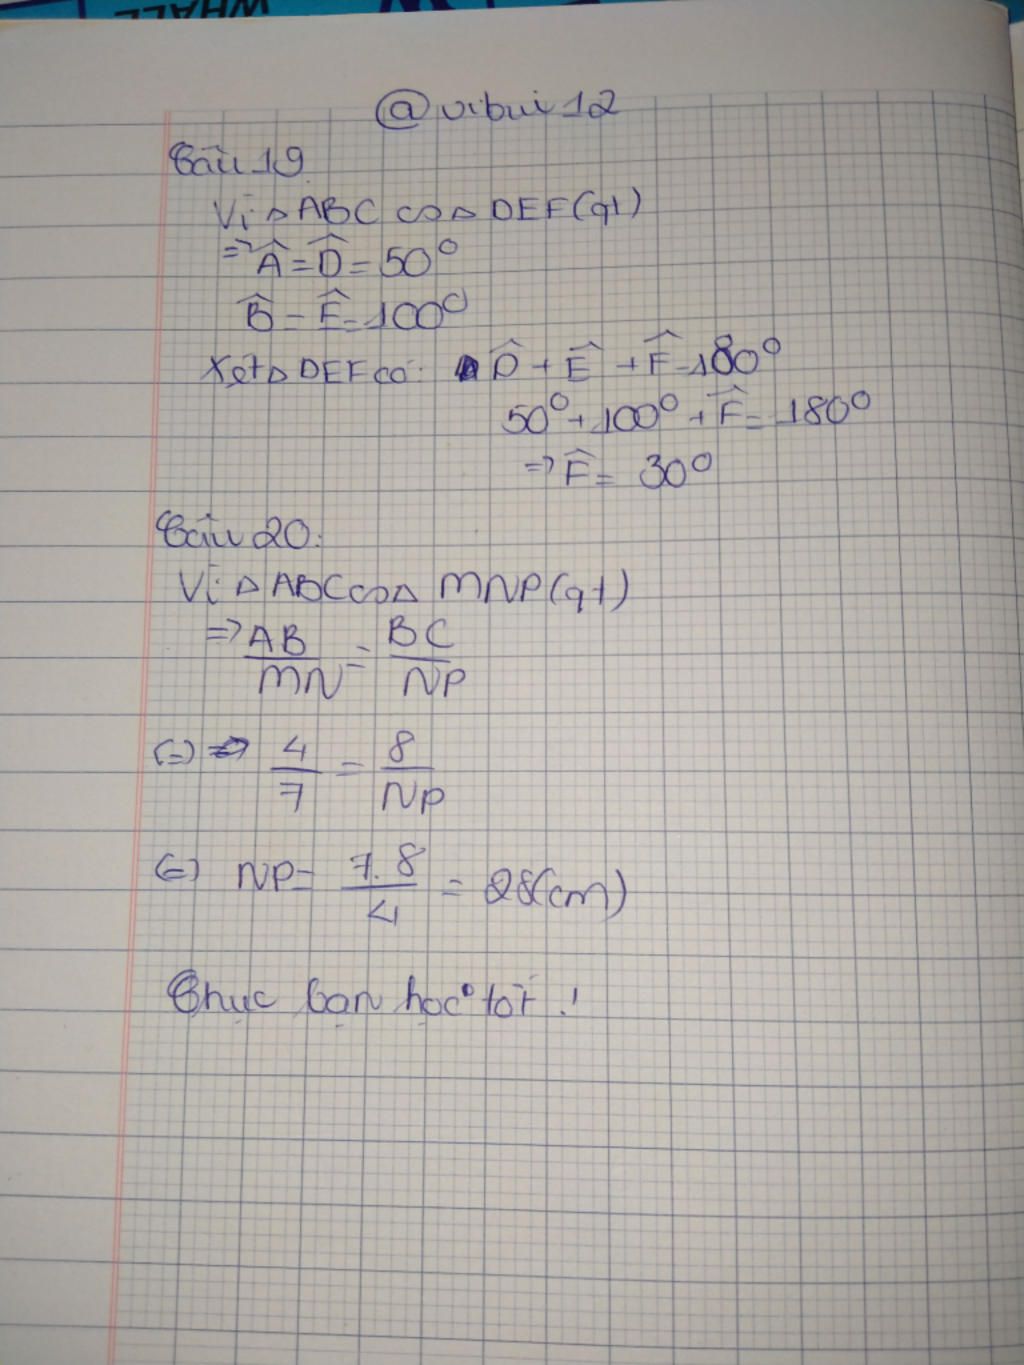 WHALL
@vibui12
Câu 19.
Vì △ABC ∽ △DEF(gt)
=> Â = D̂ = 50⁰
B̂ = Ê = 100⁰
Xét △DEF có: D̂ + Ê + F̂ = 180⁰
50⁰ + 100⁰ + F̂ = 180⁰
=> F̂ = 30⁰
Câu 20:
Vì △ABC ∽ △MNP(gt)
=> AB/MN = BC/NP
(=) 4/7 = 8/NP
(=) NP = 7.8/4 = 28(cm)
Chúc bạn học tốt !